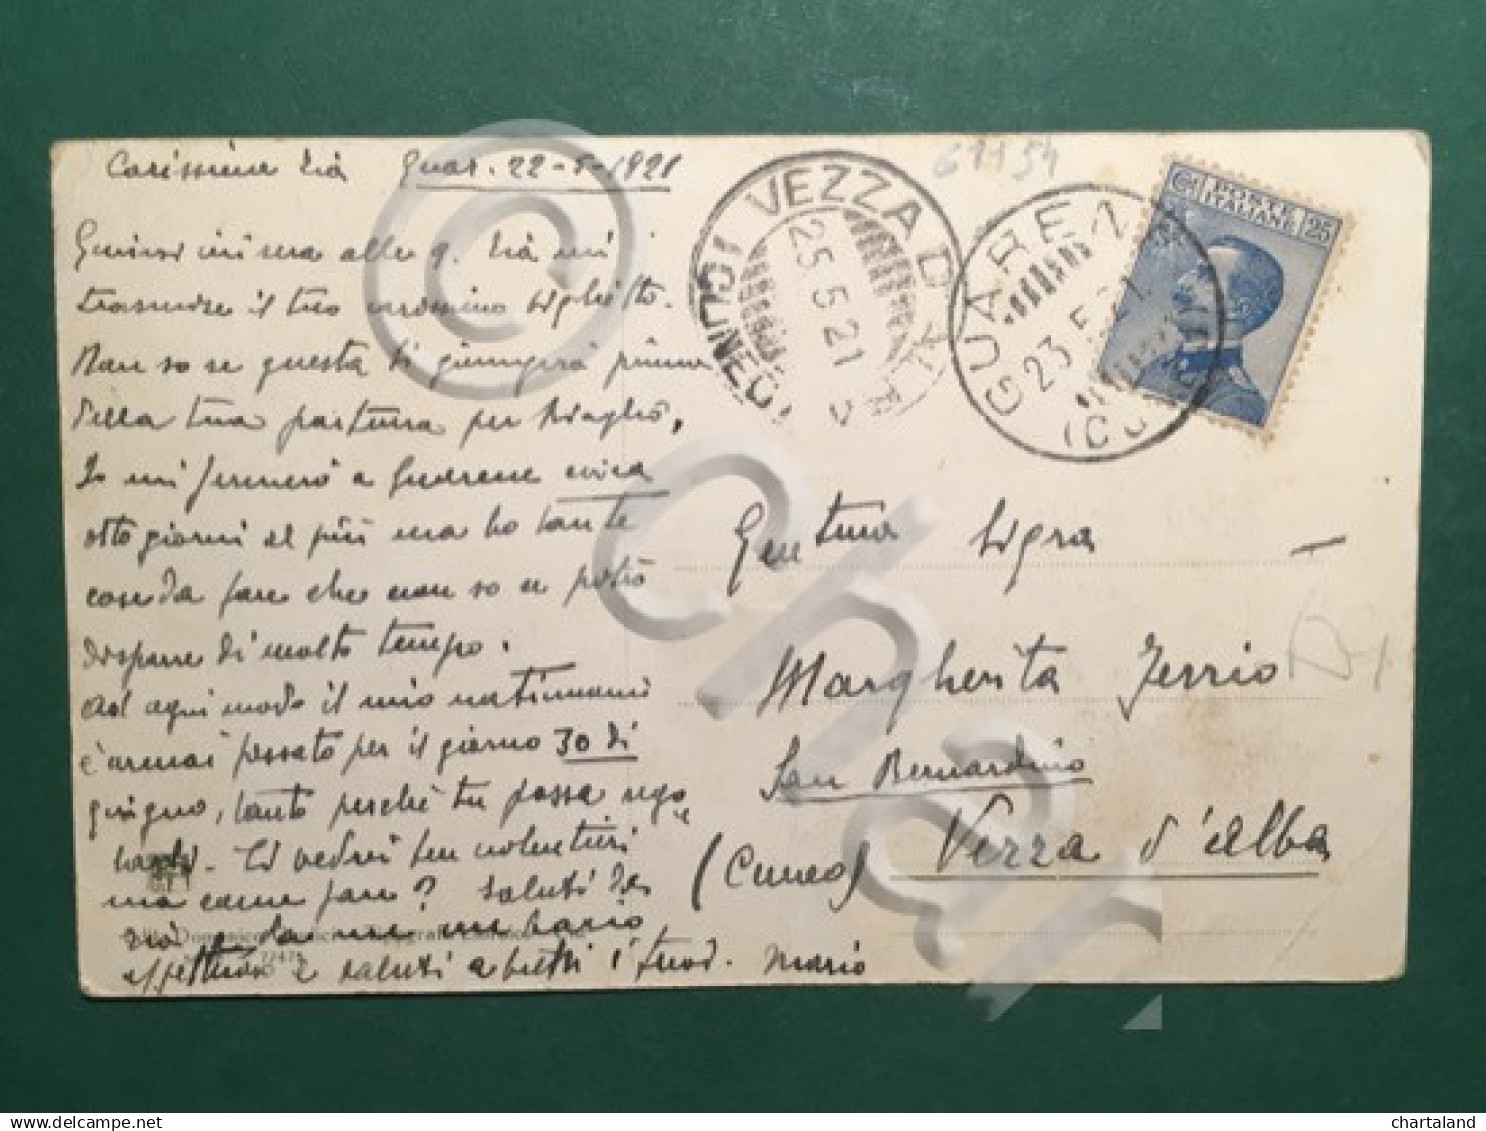 Carissima zia Guar. 22-5-1921
Giunsi ieri sera alle 9. Zia mi
trasmise il tuo carissimo biglietto.
Non so se questa ti giungerà prima
della tua partenza per
Io mi fermerò a Guarene circa
otto giorni al più ma ho tante
cose da fare che non so se potrò
disporre di molto tempo.
Ad ogni modo il mio
è ormai fissato per il giorno 30 di
giugno, tanto perchè tu possa rego
larti. Ti vedrei ben volentieri
ma come fare? Saluti da
zia e da me un bacio
affettuoso e saluti a tutti i tuoi. Mario
VEZZA D'ALBA
(CUNEO)
25.5.21
GUARENE
(CUNEO)
23.5.21
61154
POSTE
ITALIANE
25
Gentma Sigra
Margherita Ferrio
San Bernardino
Vezza d'Alba
(Cuneo)
72471
char
©
chartaland